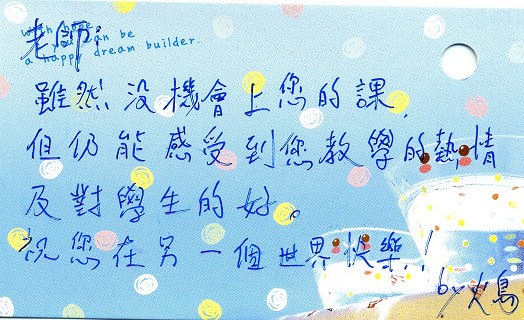 with hope,
you can be
a happy dream builder.
老師：
雖然沒機會上您的課，
但仍能感受到您教學的熱情
及對學生的好。
祝您在另一個世界快樂！
by 火鳥